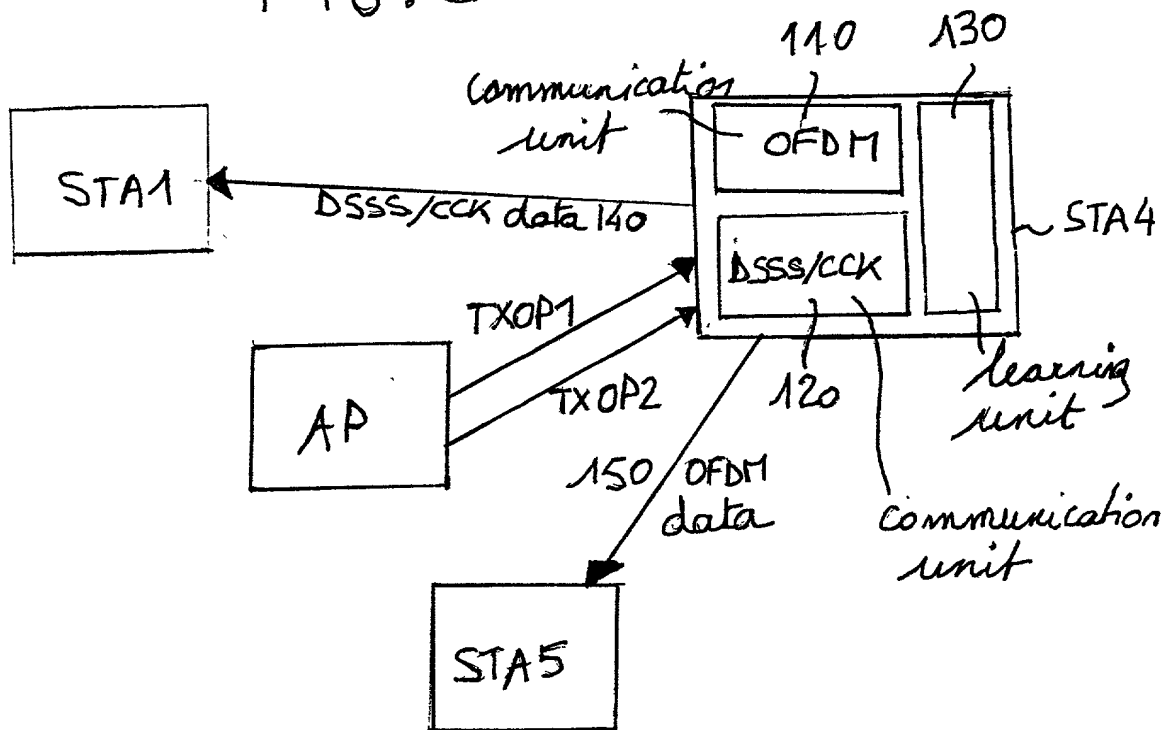 110
130
communication
unit
OFDM
STA1
DSSS/CCK data 140
STA4
DSSS/CCK
TXOP1
TXOP2
120
learning
unit
AP
150 OFDM
data
communication
unit
STA5